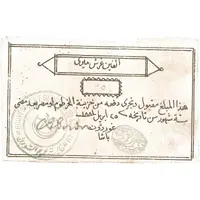 الفين غرش ميرى
هذا المبلغ مقبول ويجرى دفعه من خزينة الخرطوم او مصر بعد مضى
ستة شهور من تاريخه ٢٥ ابريل ١٨٨٤
غوردون
باشا